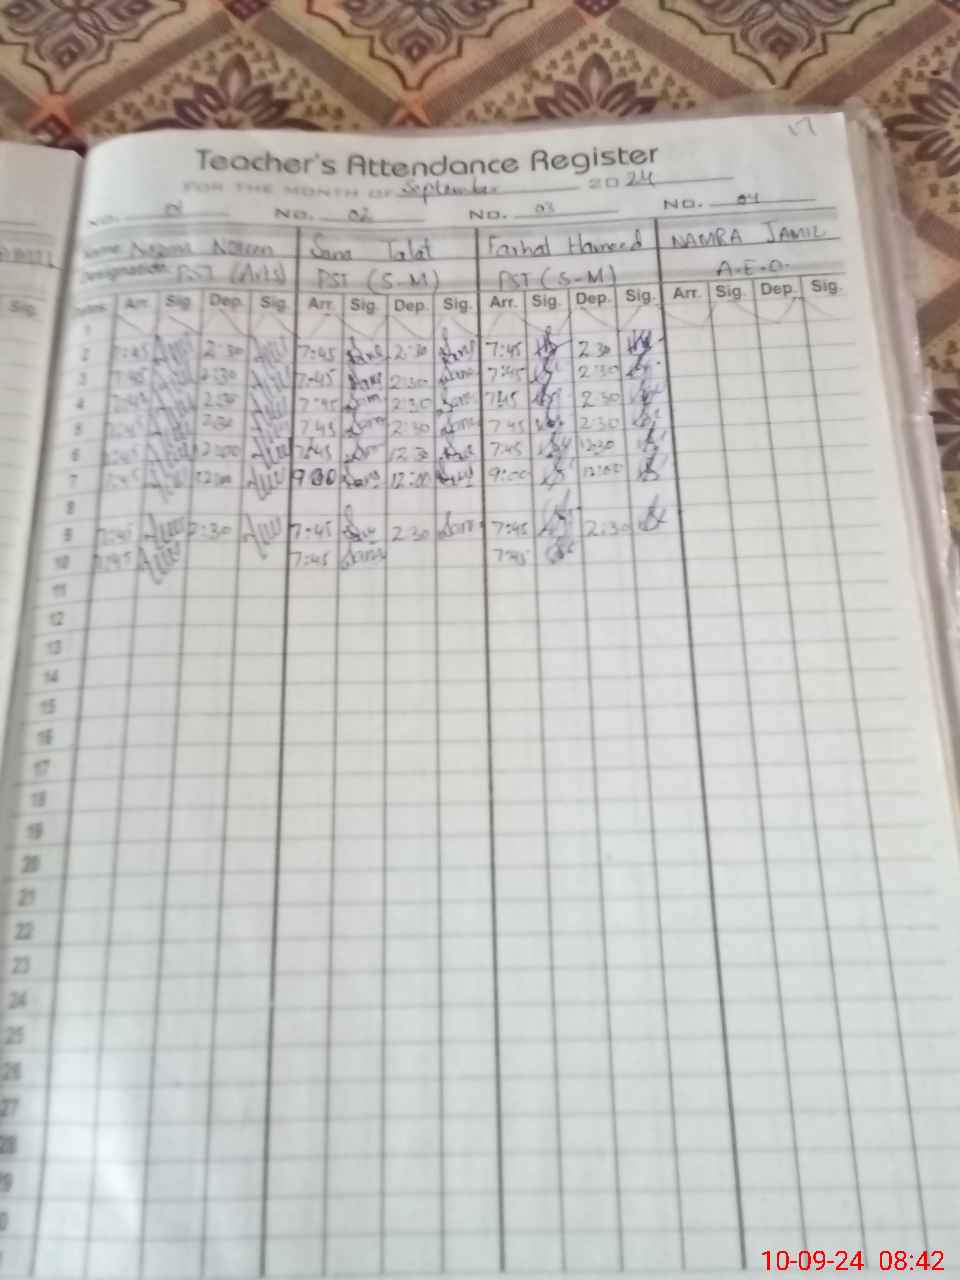 17
Teacher's Attendance Register
FOR THE MONTH OF September 2024
NO. 01 NO. 02 NO. 03 NO. 04
Name Noreen Sana Talat Farhat Hameed NAMRA JAMIL
Designation PST (Arts) PST (S-M) PST (S-M) A.E.O.
Arr. Sig. Dep. Sig. Arr. Sig. Dep. Sig. Arr. Sig. Dep. Sig. Arr. Sig. Dep. Sig.
Sig.
1
2 7:45 2:30 7:45 Sana 2:30 Sana 7:45 2:30
3 7:45 2:30 7:45 Sana 2:30 Sana 7:45 2:30
4 7:45 2:30 7:45 Sana 2:30 Sana 7:45 2:30
5 7:45 2:30 7:45 Sana 2:30 Sana 7:45 2:30
6 7:45 7:45 12:30 7:45 12:30
7 7:45 12:00 9:00 Sana 12:00 9:00 12:00
8
9 7:45 2:30 7:45 2:30 Sana 7:45 2:30
10 7:45 7:45 Sana 7:45
11
12
13
14
15
16
17
18
19
20
21
22
23
24
25
26
27
28
29
10-09-24 08:42